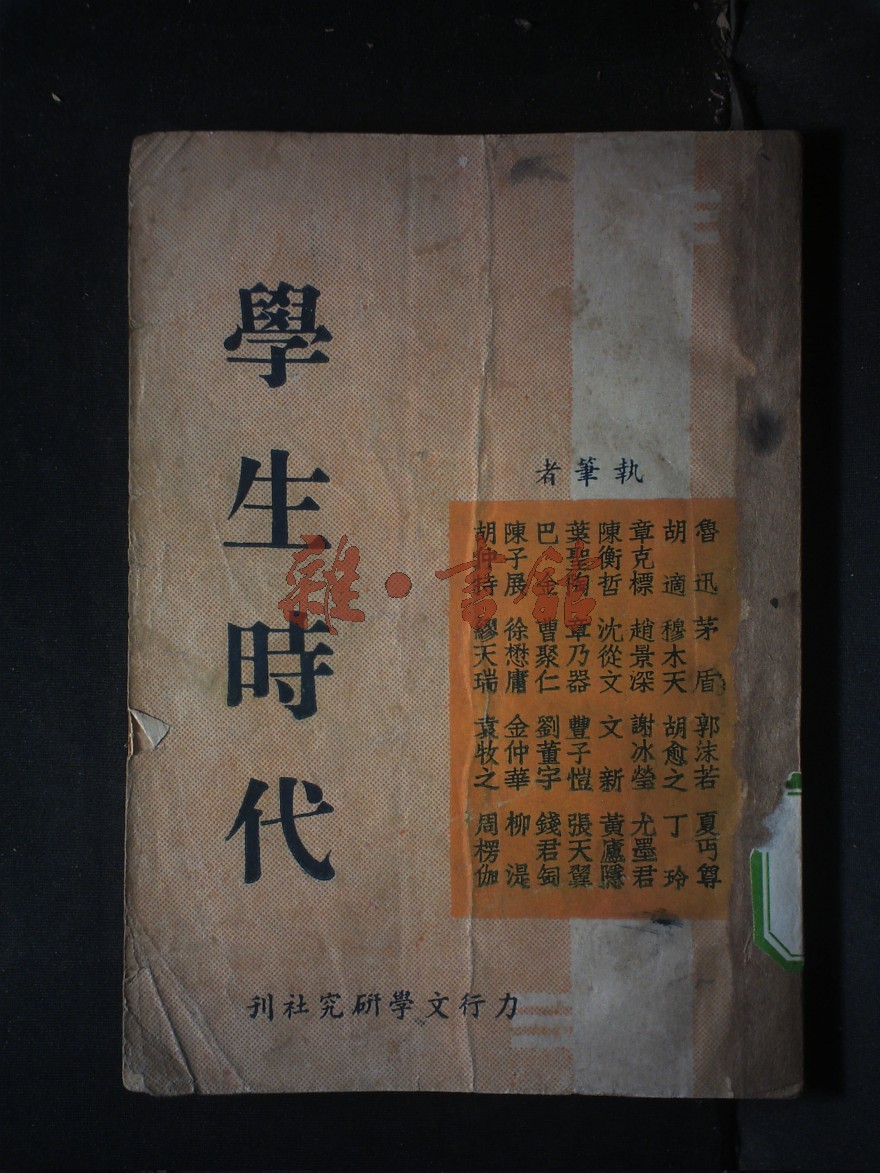 學生時代
執筆者
魯迅 茅盾 郭沫若 夏丏尊
胡適 穆木天 胡愈之 丁玲
章克標 趙景深 謝冰瑩 尤墨君
陳衡哲 沈從文 文新 黃廬隱
葉聖陶 章乃器 豐子愷 張天翼
巴金 曹聚仁 劉董宇 錢君匋
陳子展 徐懋庸 金仲華 柳湜
胡仲持 繆天瑞 袁牧之 周楞伽
力行文學研究社刊
雜·書館